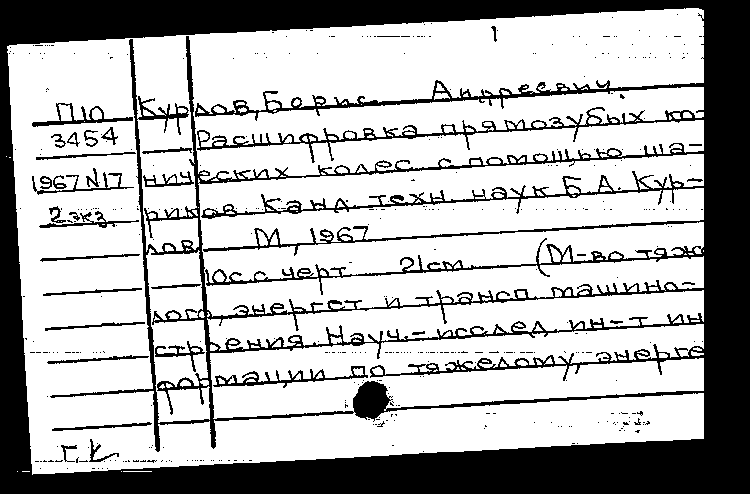 1
П10 Курлов, Борис Андреевич.
3454 Расшифровка прямозубых ко-
1967 N17 нических колес с помощью ша-
2 экз. риков. Канд. техн. наук Б.А. Кур-
лов. М, 1967
10с. с черт. 21см. (М-во тяже
лого, энергет. и трансп. машино-
строения. Науч.-исслед. ин-т ин
формации по тяжелому, энерге
Г.К.